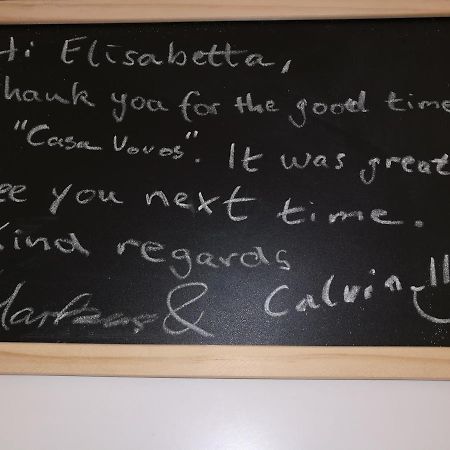 Hi Elisabetta,
hank you for the good time
"Casa Vovos". It was great
ee you next time.
Kind regards
& Calvin